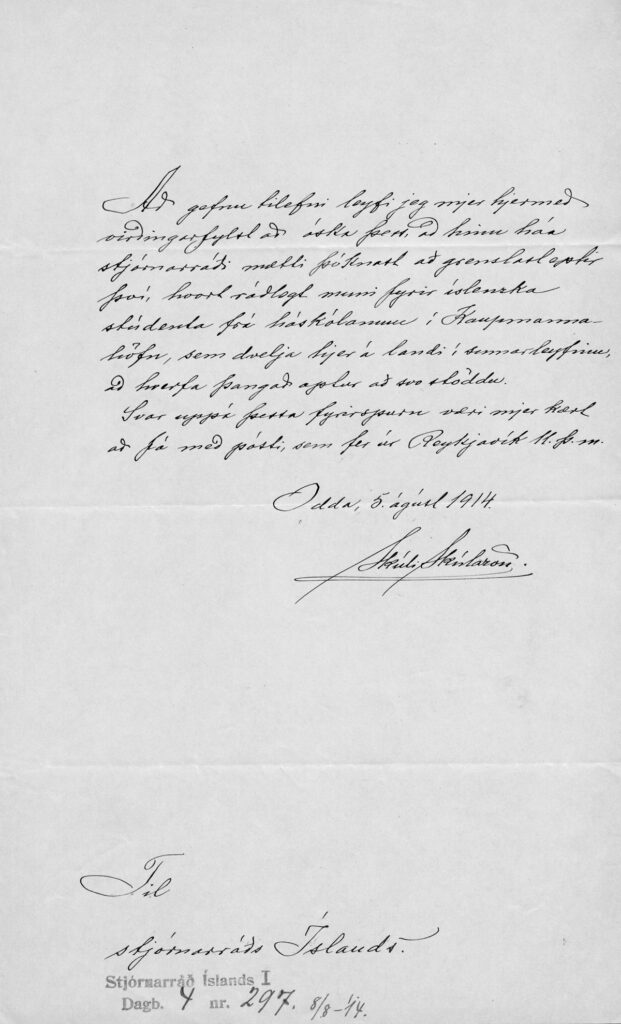 Að gefnu tilefni leyfi jeg mjer hjermeð
virðingarfylst að óska þess, að hinu háa
stjórnarráði mætti þóknast að grenslast eptir
því, hvort ráðlegt muni fyrir íslenzka
stúdenta frá háskólanum í Kaupmanna-
höfn, sem dvelja hjer á landi í sumarleyfinu,
að hverfa þangað aptur að svo stöddu.
Svar uppá þessa fyrirspurn væri mjer kært
að fá með pósti, sem fer úr Reykjavík 11. þ. m.
Odda, 5. ágúst 1914.
Skúli Skúlason.
Til
stjórnarráðs Íslands.
Stjórnarráð Íslands I
Dagb. 4 nr. 297. 8/8-'14.